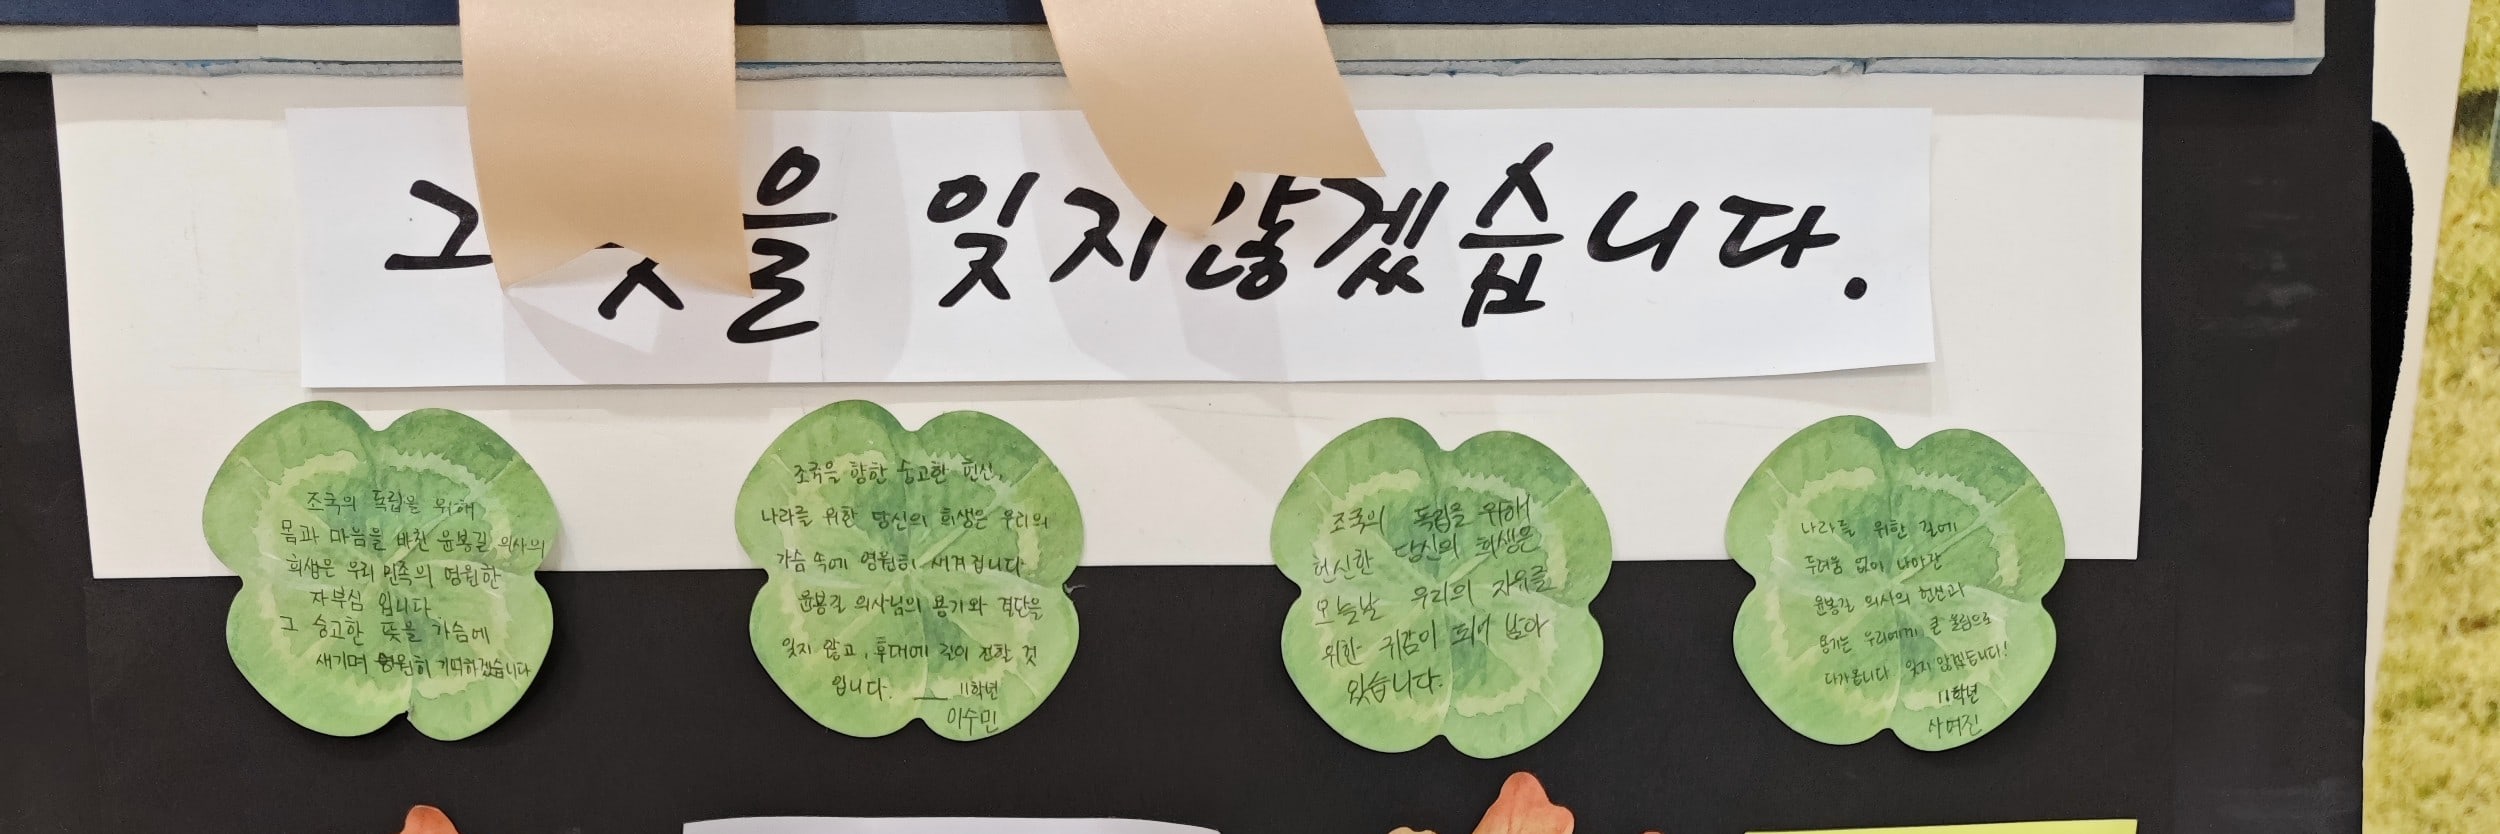 그 뜻을 잊지 않겠습니다.
조국의 독립을 위해
몸과 마음을 바친 윤봉길 의사의
희생은 우리 민족의 영원한
자부심 입니다
그 숭고한 뜻을 가슴에
새기며 영원히 기억하겠습니다
조국을 향한 숭고한 헌신,
나라를 위한 당신의 희생은 우리의
가슴 속에 영원히 새겨집니다
윤봉길 의사님의 용기와 결단을
잊지 않고, 후대에 길이 전할 것
입니다. 11학년
이수민
조국의 독립을 위해
헌신한 당신의 희생은
오늘날 우리의 자유를
위한 귀감이 되어 남아
있습니다.
나라를 위한 길에
두려움 없이 나아간
윤봉길 의사의 헌신과
용기는 우리에게 큰 울림으로
다가옵니다 잊지 않겠습니다!
11학년
사여진